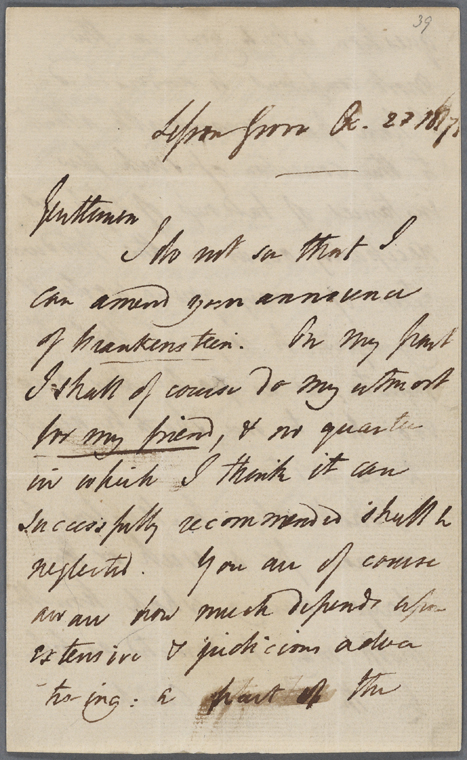 39
Lisson Grove Oc. 27 1817
Gentlemen
I do not see that I
can amend your announce
of Frankenstein. On my part
I shall of course do my utmost
for my friend, & no quarter
in which I think it can
successfully recommended shall be
neglected. You are of course
aware how much depends upon
extensive & judicious adver
tis-ing: a part of the